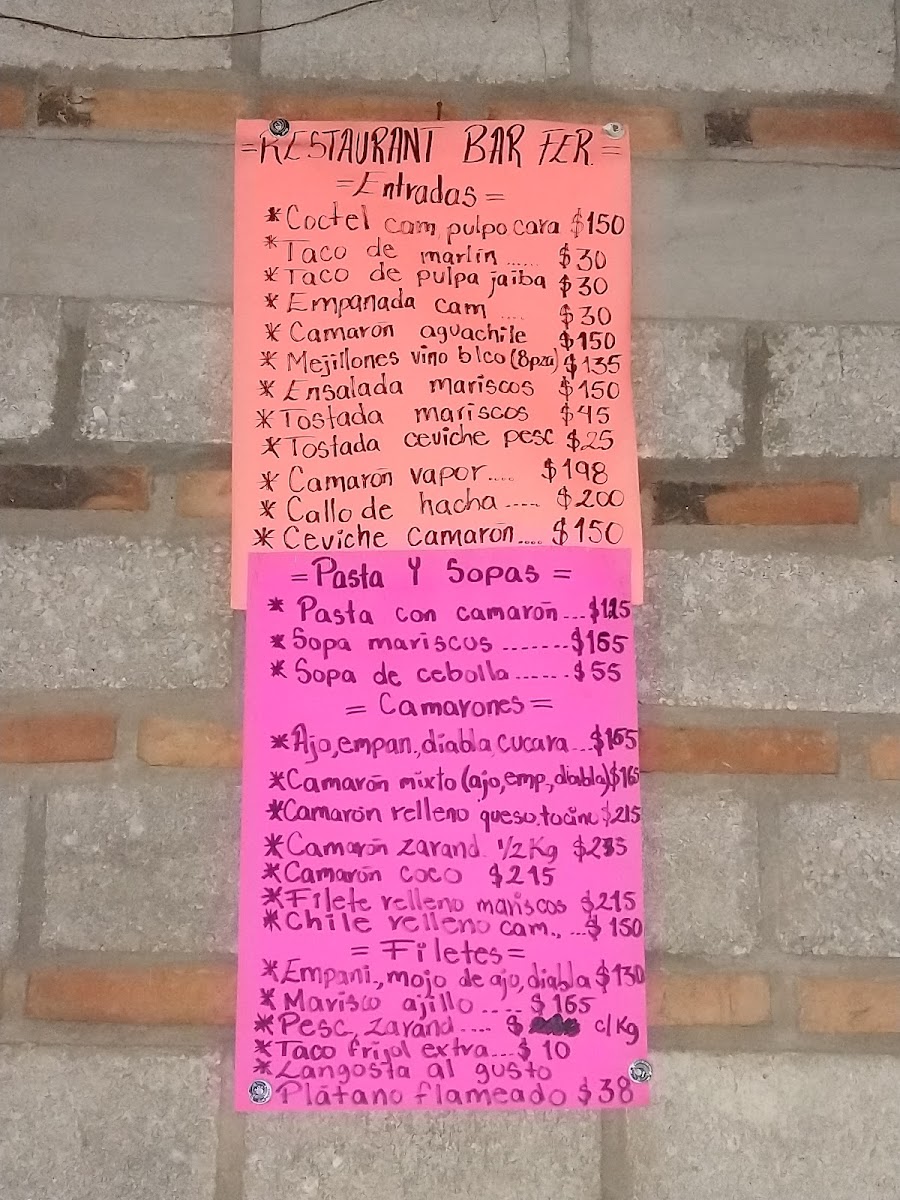 =RESTAURANT BAR FER.=
=Entradas=
*Coctel cam, pulpo cara $150
*Taco de marlin ...... $30
*Taco de pulpa jaiba $30
*Empanada cam .... $30
*Camarón aguachile $150
*Mejillones vino blco (8pza) $135
*Ensalada mariscos $150
*Tostada mariscos $45
*Tostada ceviche pesc $25
*Camarón vapor.... $198
*Callo de hacha ..... $200
*Ceviche camarón.... $150
=Pasta Y Sopas=
*Pasta con camarón...$115
*Sopa mariscos .......$165
*Sopa de cebolla ......$55
=Camarones=
*Ajo, empan., diabla, cucara...$165
*Camarón mixto (ajo, emp, diabla) $165
*Camarón relleno queso, tocino $215
*Camarón zarand. 1/2 Kg
*Camarón coco $215
*Filete relleno mariscos $215
*Chile relleno cam., ...$150
=Filetes=
*Empani., mojo de ajo, diabla $130
*Marisco ajillo .... $165
*Pesc, zarand.... $ c/Kg
*Taco frijol extra...$10
*Langosta al gusto
Plátano flameado $38